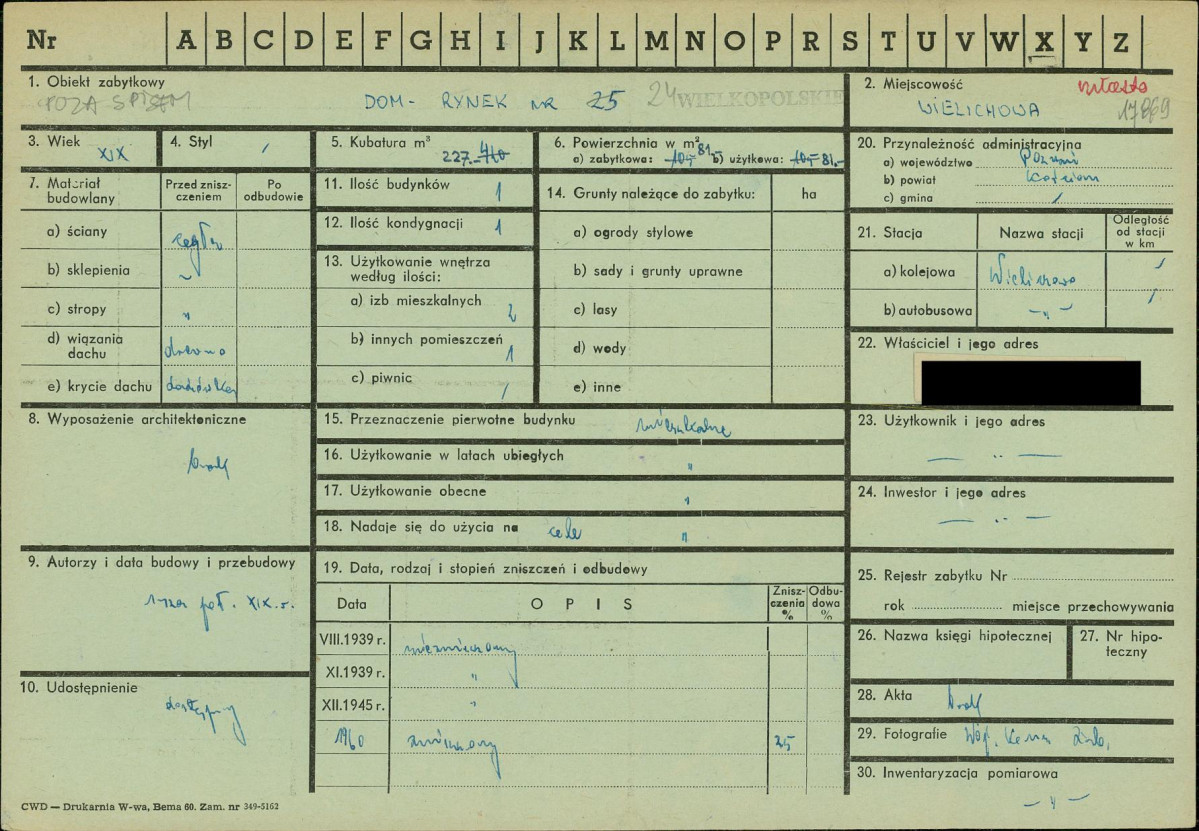 Nr A B C D E F G H I J K L M N O P R S T U V W X Y Z
1. Obiekt zabytkowy
POZA SPISEM
DOM - RYNEK NR 25 24 WIELKOPOLSKIE
2. Miejscowość
miasto
WIELICHOWA 17869
3. Wiek
XIX
4. Styl
/
5. Kubatura m³
227.-
6. Powierzchnia w m²
a) zabytkowa: 81.- b) użytkowa: 81.-
20. Przynależność administracyjna
a) województwo Poznań
b) powiat Kościan
c) gmina /
7. Materiał budowlany
Przed zniszczeniem
Po odbudowie
a) ściany cegła
b) sklepienia ~
c) stropy "
d) wiązania dachu drewno
e) krycie dachu dachówka
11. Ilość budynków 1
12. Ilość kondygnacji 1
13. Użytkowanie wnętrza
według ilości:
a) izb mieszkalnych 2
b) innych pomieszczeń 1
c) piwnic /
14. Grunty należące do zabytku: ha
a) ogrody stylowe
b) sady i grunty uprawne
c) lasy
d) wody
e) inne
21. Stacja Nazwa stacji Odległość od stacji w km
a) kolejowa Wielichowo /
b) autobusowa — " — /
22. Właściciel i jego adres
8. Wyposażenie architektoniczne
brak
15. Przeznaczenie pierwotne budynku mieszkalne
16. Użytkowanie w latach ubiegłych "
17. Użytkowanie obecne "
18. Nadaje się do użycia na cele "
23. Użytkownik i jego adres
— .. —
24. Inwestor i jego adres
— .. —
9. Autorzy i data budowy i przebudowy
1-sza poł. XIX.r.
19. Data, rodzaj i stopień zniszczeń i odbudowy
Data OPIS Zniszczenia % Odbudowa %
VIII.1939 r. niezniszczony
XI.1939 r. "
XII.1945 r. "
1960 zniszczony 25
10. Udostępnienie
dostępny
25. Rejestr zabytku Nr
rok miejsce przechowywania
26. Nazwa księgi hipotecznej
27. Nr hipoteczny
28. Akta brak
29. Fotografie Woj. Kons. Zab.
30. Inwentaryzacja pomiarowa
— " —
CWD — Drukarnia W-wa, Bema 60. Zam. nr 349-5162